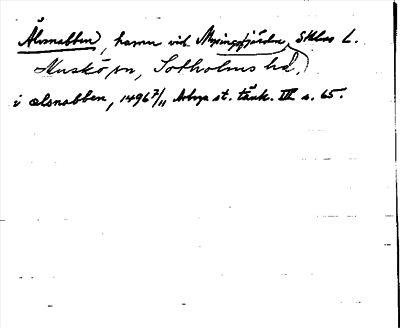 Älvsnabben, hamn vid Mysingsfjärden, Sthlms L.
Muskö sn, Sotholms hd.
i ælsnabben, 1496 7/11 Arboga st. tänk. III s. 65.